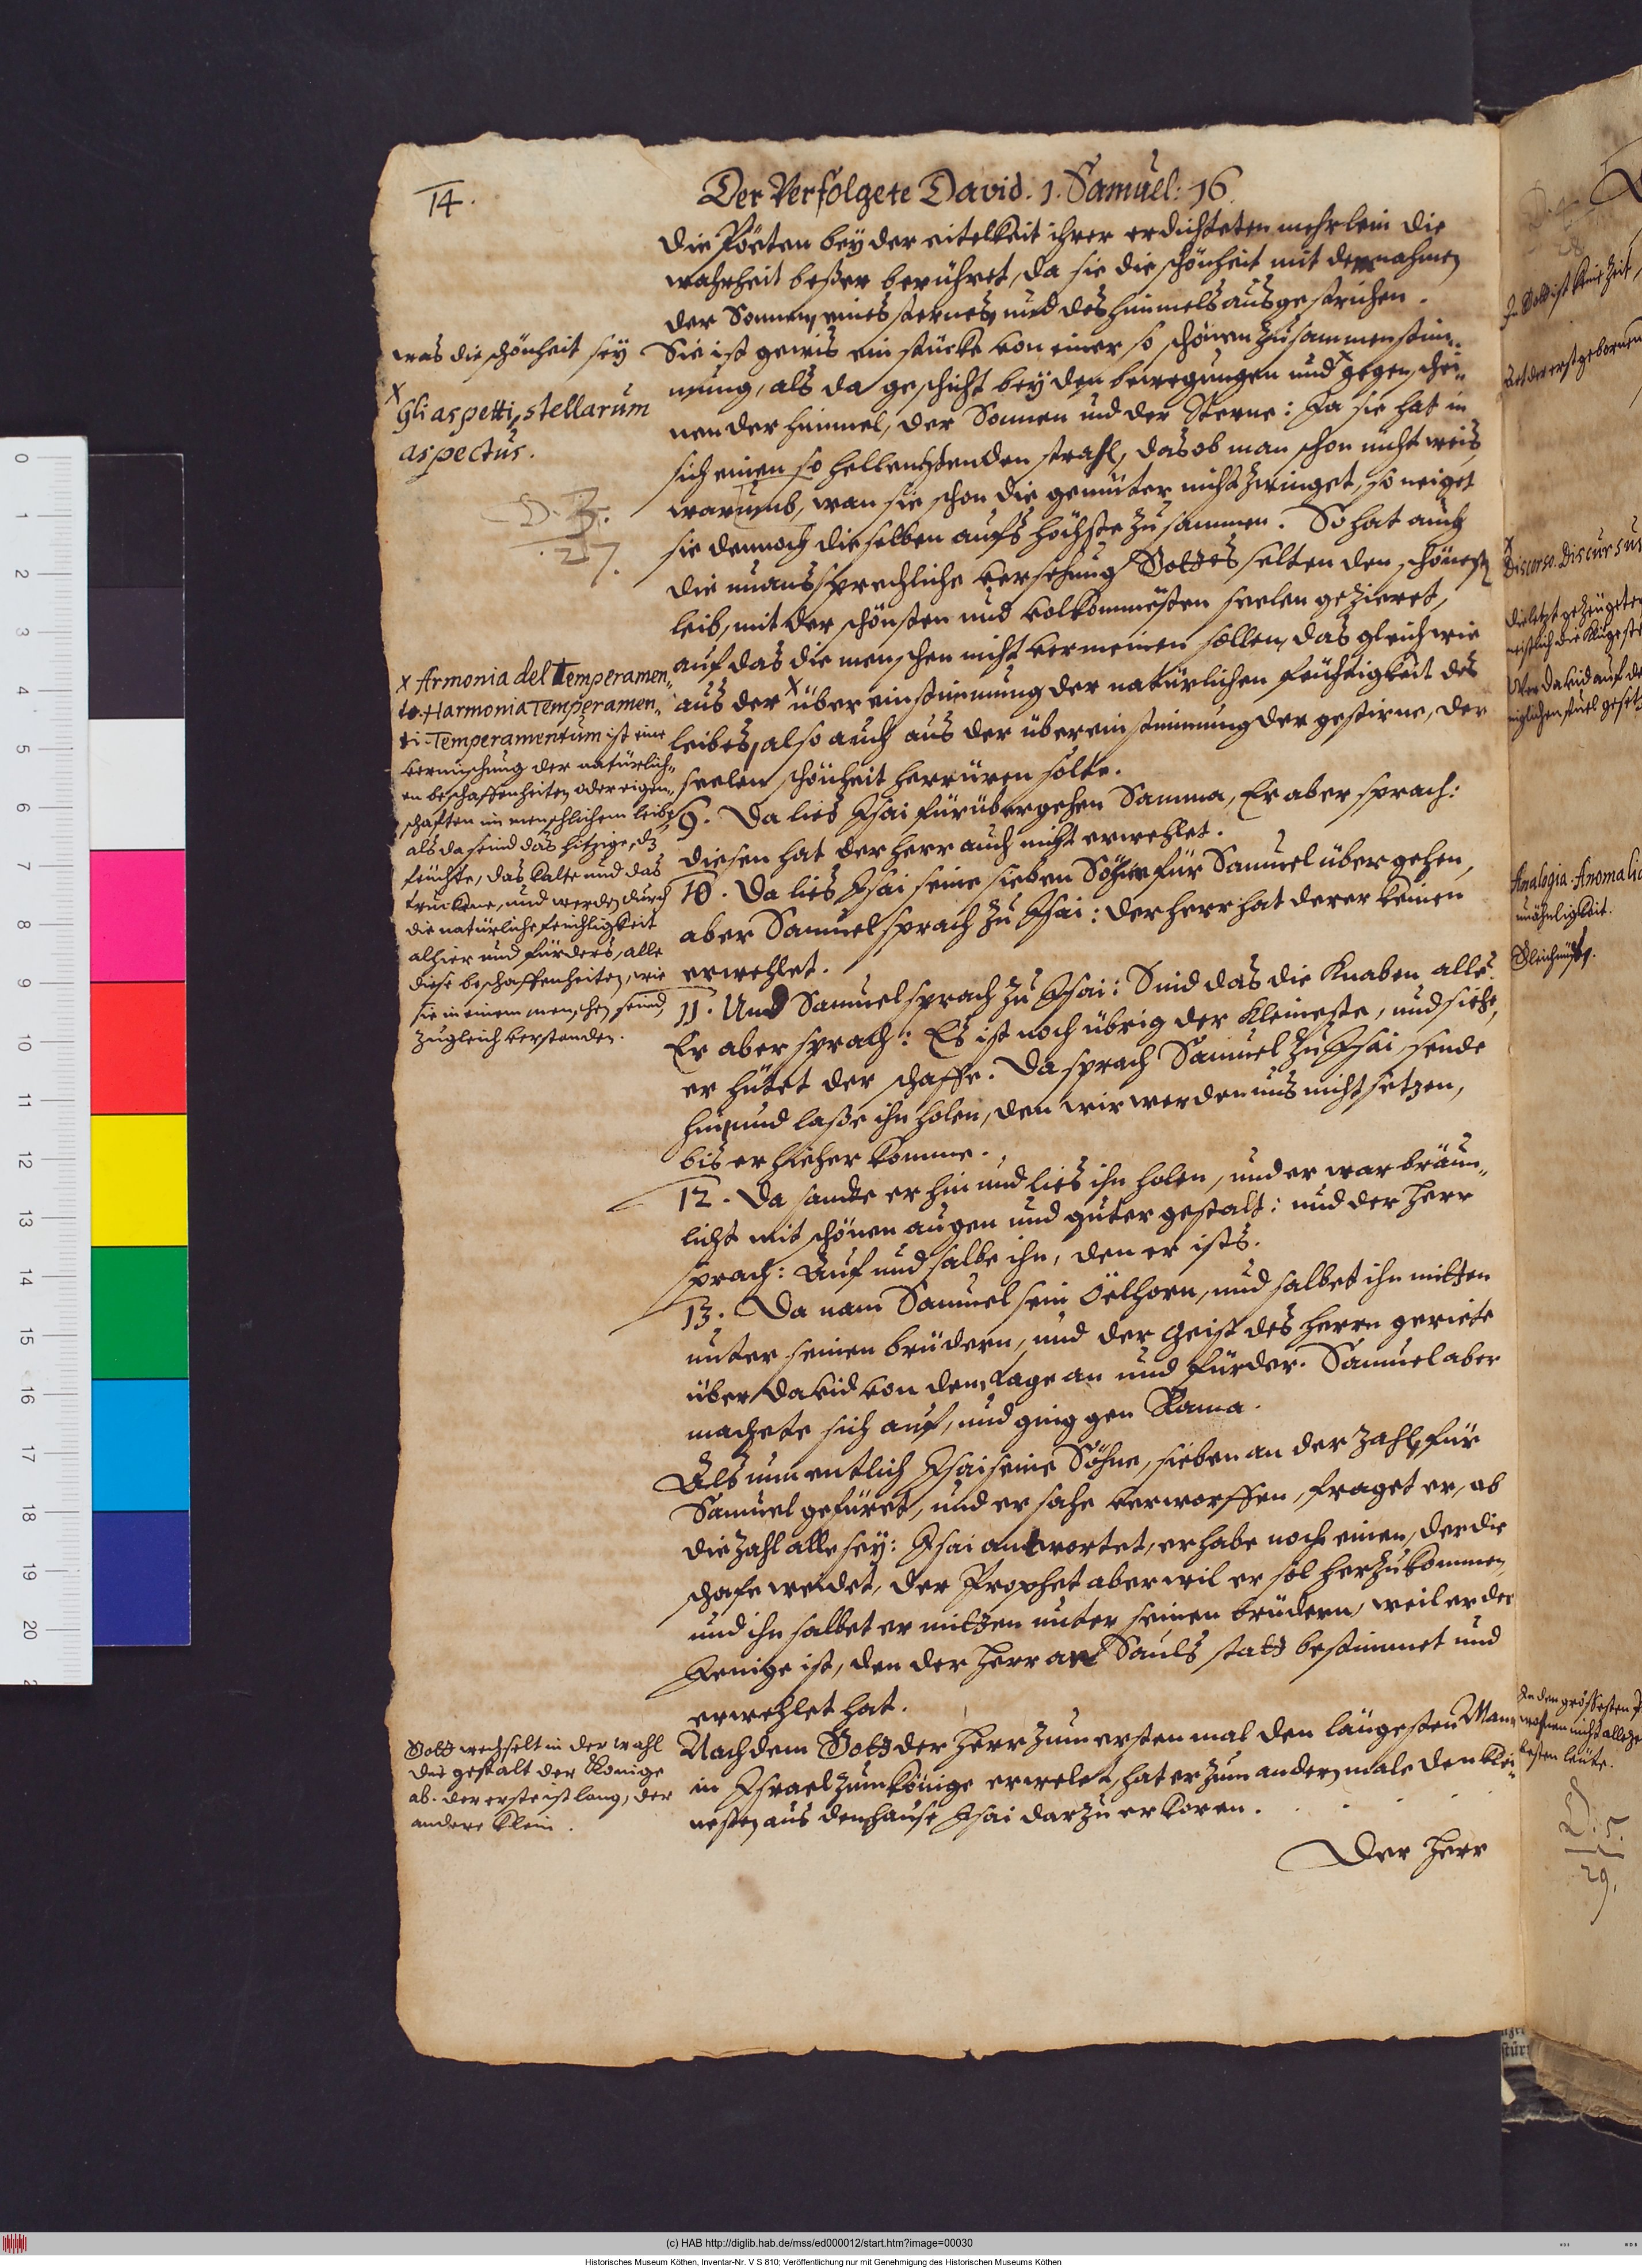 14.
Der Verfolgete David. 1. Samuel: 16.
die Poëten bey der eitelkeit ihrer erdichteten mehrlein die
wahrheit beßer berühret, da sie die schönheit mit dem nahmen
der Sonnen, eines sternes, und des himmels ausgestrichen.
was die schönheit sey
Sie ist gewis ein stücke von einer so schönen zusammenstim„
mung, als da geschicht bey den bewegungen und x gegenschei„
x
Gli aspetti, stellarum
aspectus.
nen der himmel, der Sonnen und der Sterne: Ja sie hat in
sich einen so helleuchtenden strahl, das ob man schon nicht weis
D. 3.
27.
warumb, wan sie schon die gemüter nicht zwinget, so neiget
sie dennoch dieselben aufs höchste zusammen. So hat auch
die unaussprechliche versehung Gottes selten den schönesten
leib, mit der schönsten und volkommesten seelen gezieret,
auf das die menschen nicht vermeinen sollen, das gleich wie
aus der x übereinstimmung der natürlichen feuchtigkeit des
leibes, also auch aus der übereinstimmung der gestirne, der
seelen schönheit herrüren solte.
x Armonia del Temperamen„
to. Harmonia Temperamen„
ti. Temperamentum ist eine
vermischung der natürlich„
en beschaffenheiten oder eigen„
schaften im menschlichem leibe
als da seind das hitzige, dz
feuchte, das kalte und das
truckene, und werden durch
die natürliche feuchtigkeit
alhier und fürders, alle
diese beschaffenheiten, wie
sie in einem menschen seind,
zugleich verstanden.
9. Da lies Isai fürübergehen Samma, Er aber sprach:
diesen hat der herr auch nicht erwehlet.
10. Da lies Isai seine sieben Söhne für Samuel übergehen,
aber Samuel sprach zu Isai: der herr hat derer keinen
erwehlet.
11. Und Samuel sprach zu Isai: Sind das die Knaben alle?
Er aber sprach: Es ist noch übrig der kleineste, und siehe,
er hütet der schaffe. Da sprach Samuel zu Isai, sende
hin, und laße ihn holen, den wir werden uns nicht setzen,
bis er hieher komme.
12. Da sandte er hin und lies ihn holen, und er war bräun„
licht mit schönen augen und guter gestalt: und der Herr
sprach: Auf und salbe ihn, den er ists.
13. Da nam Samuel sein Öelhorn, und salbet ihn mitten
unter seinen brüdern, und der Geist des herrn geriete
über David von dem tage an und fürder. Samuel aber
machete sich auf, und ging gen Rama.
Als nun entlich Isai seine Söhne, sieben an der zahl, für
Samuel gefüret, und er sahe verworffen, fraget er, ob
die zahl alle sey: Isai antwortet, er habe noch einen, der die
schafe weidet, der Prophet aber wil er sol herzukommen,
und ihn salbet er mitten unter seinen brüdern, weil er der
Jenige ist, den der Herr an Sauls statt bestimmet und
erwehlet hat.
Gott wechselt in der wahl
die gestalt der Könige
ab. der erste ist lang, der
andere klein.
Nachdem Gott der Herr zum ersten mal den längesten Man
in Israel zum könige erwelet, hat er zum andern male den klei„
nesten aus dem hause Isai darzu erkoren.
Der Herr
D. 4.
28
In Gott ist keine Zeit,
Discorso. Discursus
Analogia. Anomalia
unähnligkeit.
D. 5.
29.
0 1 2 3 4 5 6 7 8 9 10 11 12 13 14 15 16 17 18 19 20
(c) HAB http://diglib.hab.de/mss/ed000012/start.htm?image=00030
Historisches Museum Köthen, Inventar-Nr. V S 810; Veröffentlichung nur mit Genehmigung des Historischen Museums Köthen